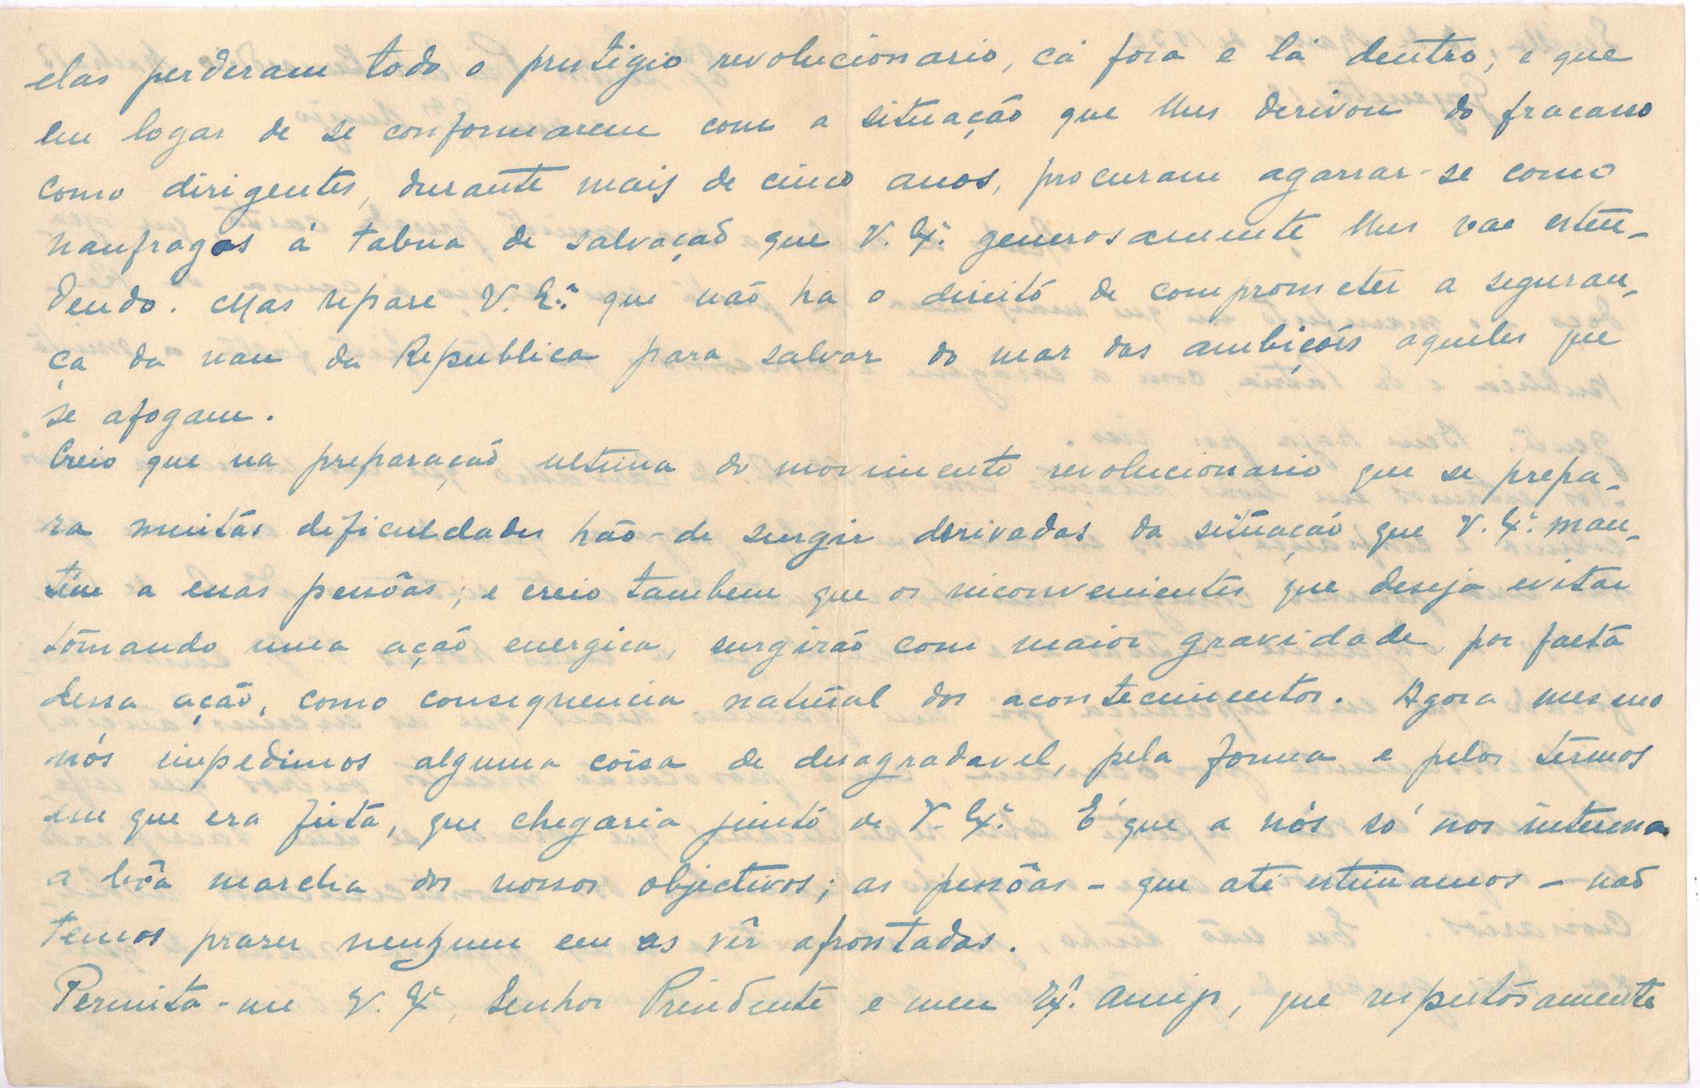 elas perderam todo o prestigio revolucionario, cá fora e lá dentro; e que
em logar de se conformarem com a situação que lhes derivou do fracasso
como dirigentes, durante mais de cinco anos, procuram agarrar-se como
naufragos á tabua de salvação que V. Exª. generosamente lhes vae esten-
dendo. Mas repare V. Exª. que não ha o direito de comprometer a seguran-
ça da nau da Republica para salvar do mar das ambições aqueles que
se afogam.
Creio que na preparação ultima do movimento revolucionario que se prepa-
ra muitas dificuldades hão-de surgir derivadas da situação que V. Exª. man-
tem a essas pessôas; e creio tambem que os inconvenientes que deseja evitar
tômando uma ação energica, surgirão com maior gravidade, por falta
dessa ação, como consequencia natural dos acontecimentos. Agora mesmo
nós impedimos alguma coisa de desagradavel, pela forma e pelos têrmos
em que era feita, que chegaria junto de V. Exª. É que a nós só nos interessa
a bôa marcha dos nossos objectivos; as pessôas - que até estimamos - não
temos prazer nenhum em as vêr afrontadas.
Permita-me V. Exª, Senhor Presidente e meu Exº. amigo, que respeitosamente